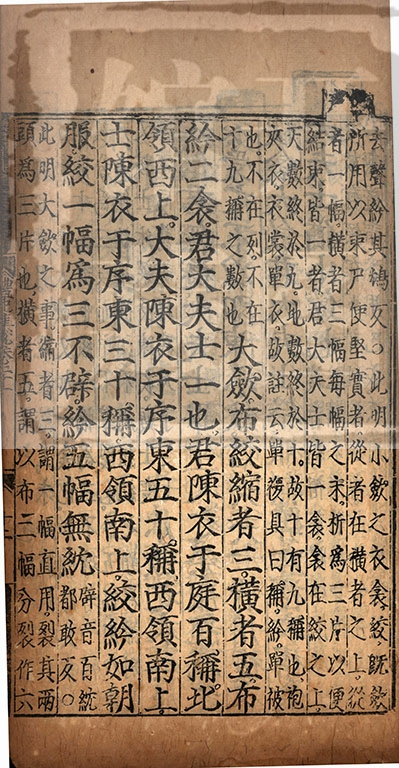 去聲紟其鴆反○此明小斂之衣衾絞既斂
所用以束尸便堅實者從者在橫者之上從
者一幅橫者三幅每幅之末析爲三片以便
結束皆一者君大夫士皆一衾衾在絞之上
天數終於九地數終於十故十有九稱也袍
夾衣衣裳單衣故註云單複具曰稱紟單被
也不在列不在
十九稱之數也
大斂布絞縮者三橫者五布
紟二衾君大夫士一也君陳衣于庭百稱北
領西上大夫陳衣于序東五十稱西領南上
士陳衣于序東三十稱西領南上絞紟如朝
服絞一幅爲三不辟紟五幅無紞
辟音百紞
都敢反○
此明大斂之事縮者三謂一幅直用裂其兩
頭爲三片也橫者五謂以布二幅分裂作六